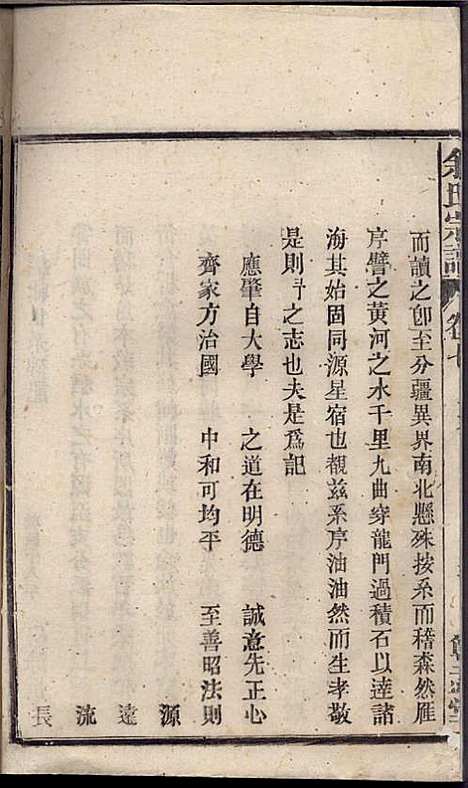 余氏宗譜 卷七
而讀之卽至分疆異界南北懸殊按系而稽森然雁
序譬之黃河之水千里九曲穿龍門過積石以達諸
海其始固同源星宿也覩茲系序油油然而生孝敬
是則斗之志也夫是爲記
應肇自大學 之道在明德 誠意先正心
齊家方治國 中和可均平 至善昭法則
源
遠
流
長